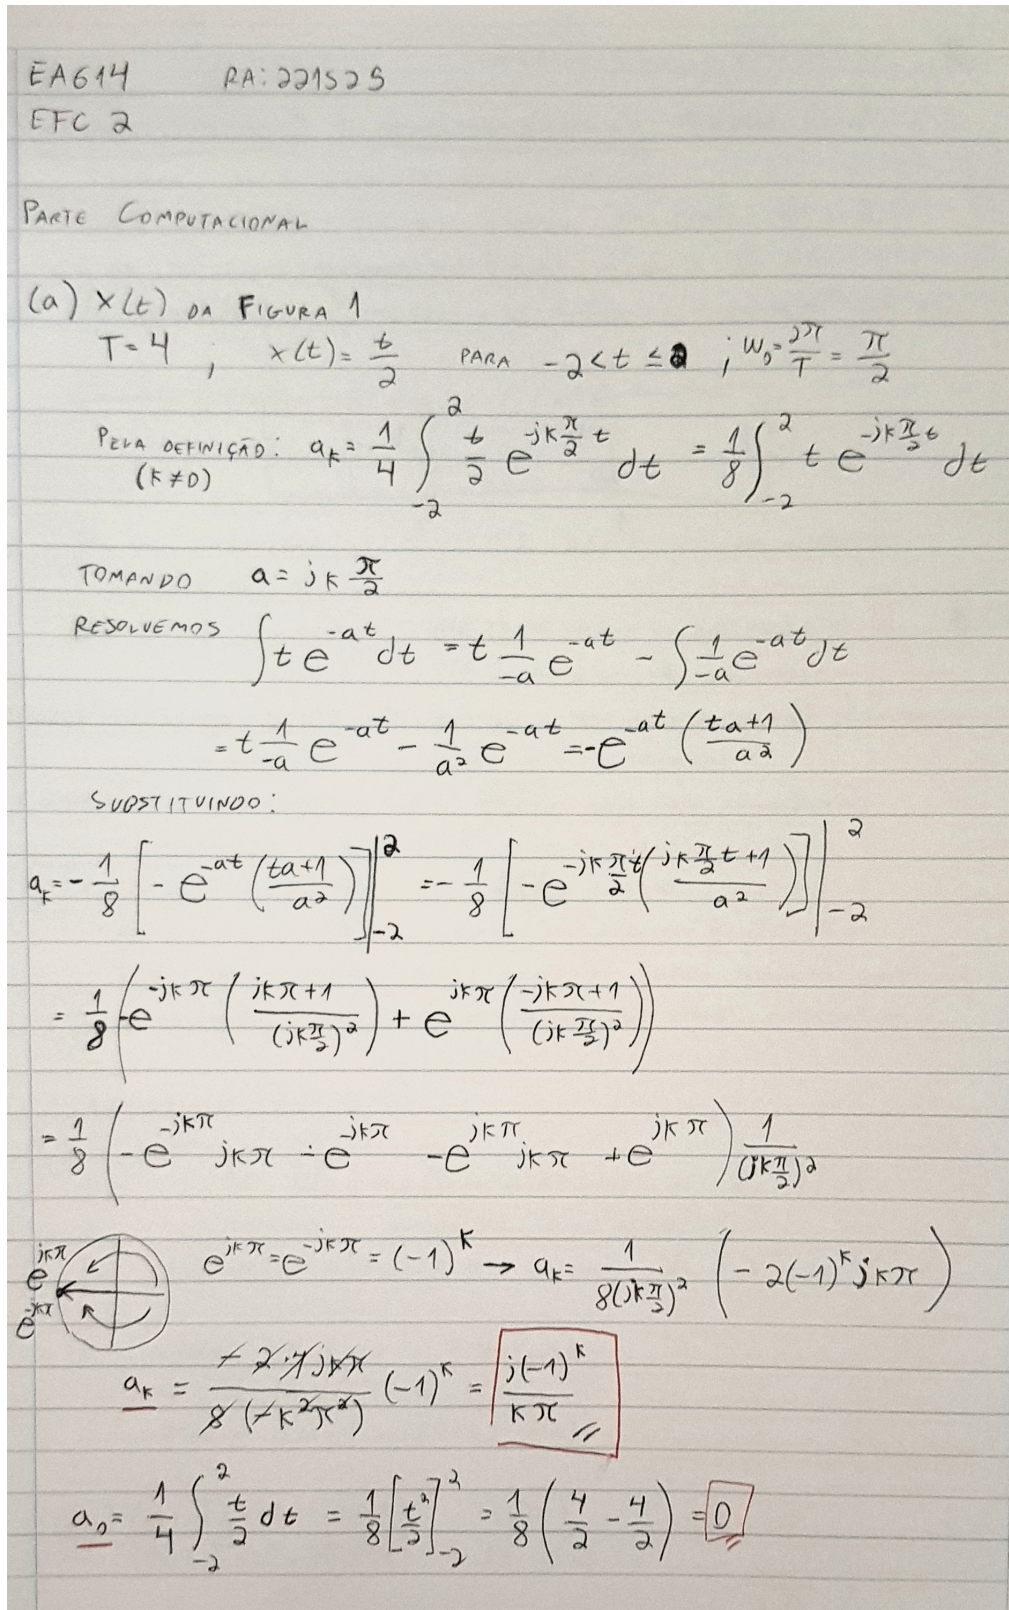 EA614 RA: 221525
EFC 2
PARTE COMPUTACIONAL
(a) x(t) DA FIGURA 1
T=4 ; x(t) = t/2 PARA -2 < t ≤ 2 ; W₀ = 2π/T = π/2
PELA DEFINIÇÃO: a_k = 1/4 ∫_{-2}^{2} t/2 e^{-jk π/2 t} dt = 1/8 ∫_{-2}^{2} t e^{-jk π/2 t} dt
(k ≠ 0)
TOMANDO a = jk π/2
RESOLVEMOS ∫ t e^{-at} dt = t 1/-a e^{-at} - ∫ 1/-a e^{-at} dt
= t 1/-a e^{-at} - 1/a² e^{-at} = -e^{-at} ( (ta+1)/a² )
SUBSTITUINDO:
a_k = - 1/8 [ - e^{-at} ( (ta+1)/a² ) ] |_{-2}^{2} = - 1/8 [ - e^{-jk π/2 t} ( (jk π/2 t + 1)/a² ) ] |_{-2}^{2}
= 1/8 ( -e^{-jkπ} ( (jkπ+1)/(jk π/2)² ) + e^{jkπ} ( (-jkπ+1)/(jk π/2)² ) )
= 1/8 ( -e^{-jkπ} jkπ - e^{-jkπ} - e^{jkπ} jkπ + e^{jkπ} ) 1/(jk π/2)²
e^{jkπ} e^{-jkπ} e^{jkπ} = e^{-jkπ} = (-1)^k → a_k = 1/(8(jk π/2)²) ( - 2(-1)^k jkπ )
a_k = (-2·4jkπ)/(8(-k²π²)) (-1)^k = j(-1)^k/(kπ)
a₀ = 1/4 ∫_{-2}^{2} t/2 dt = 1/8 [ t²/2 ]_{-2}^{2} = 1/8 ( 4/2 - 4/2 ) = 0